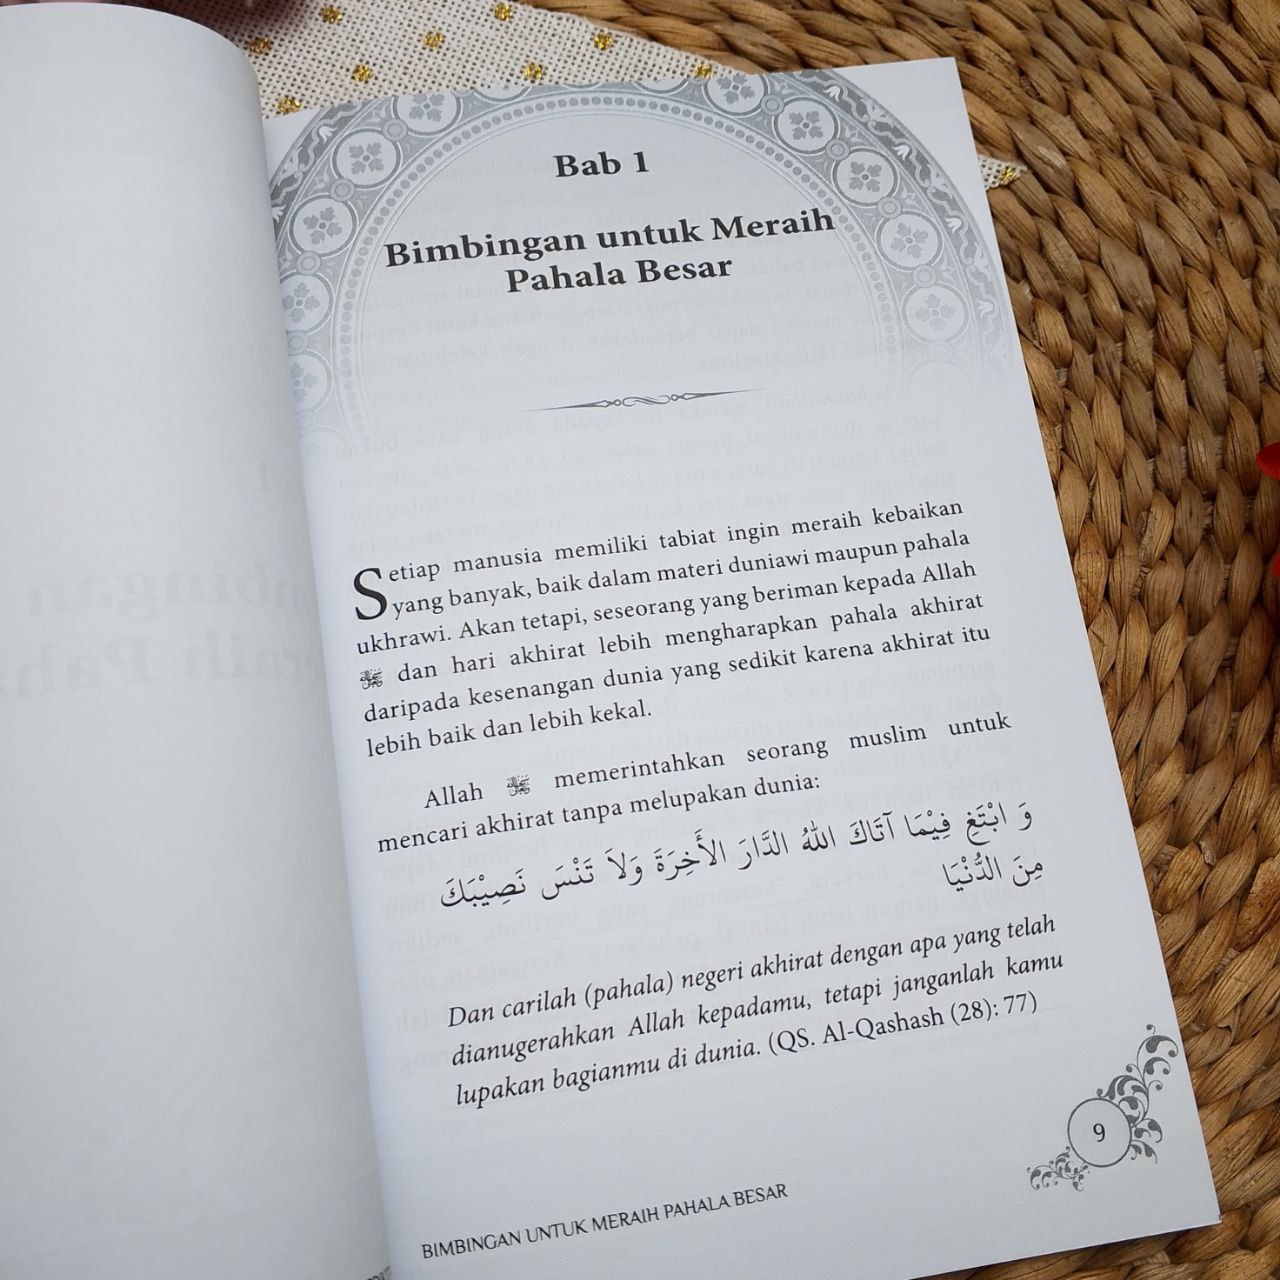 Bab 1
Bimbingan untuk Meraih
Pahala Besar
Setiap manusia memiliki tabiat ingin meraih kebaikan
yang banyak, baik dalam materi duniawi maupun pahala
ukhrawi. Akan tetapi, seseorang yang beriman kepada Allah
ﷻ dan hari akhirat lebih mengharapkan pahala akhirat
daripada kesenangan dunia yang sedikit karena akhirat itu
lebih baik dan lebih kekal.
Allah ﷻ memerintahkan seorang muslim untuk
mencari akhirat tanpa melupakan dunia:
وَ ابْتَغِ فِيْمَا آتَاكَ اللهُ الدَّارَ الأَخِرَةَ وَلاَ تَنْسَ نَصِيْبَكَ
مِنَ الدُّنْيَا
Dan carilah (pahala) negeri akhirat dengan apa yang telah
dianugerahkan Allah kepadamu, tetapi janganlah kamu
lupakan bagianmu di dunia. (QS. Al-Qashash (28): 77)
9
BIMBINGAN UNTUK MERAIH PAHALA BESAR